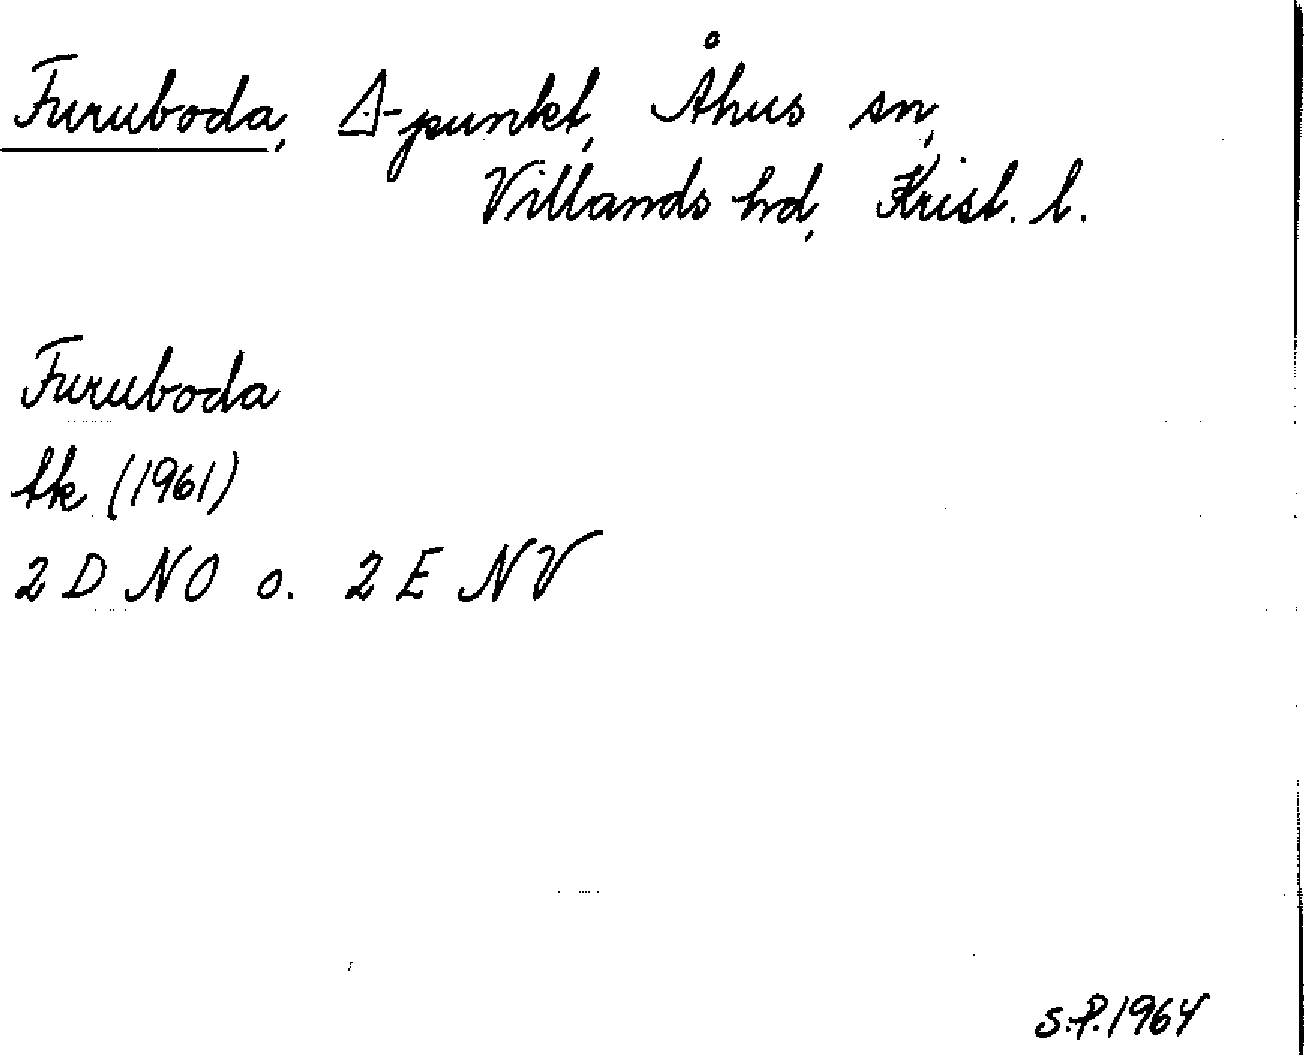 Furuboda, △-punkt, Åhus sn,
Villands hd, Krist. l.
Furuboda
tk (1961)
2 D NO o. 2 E NV
S.P. 1964